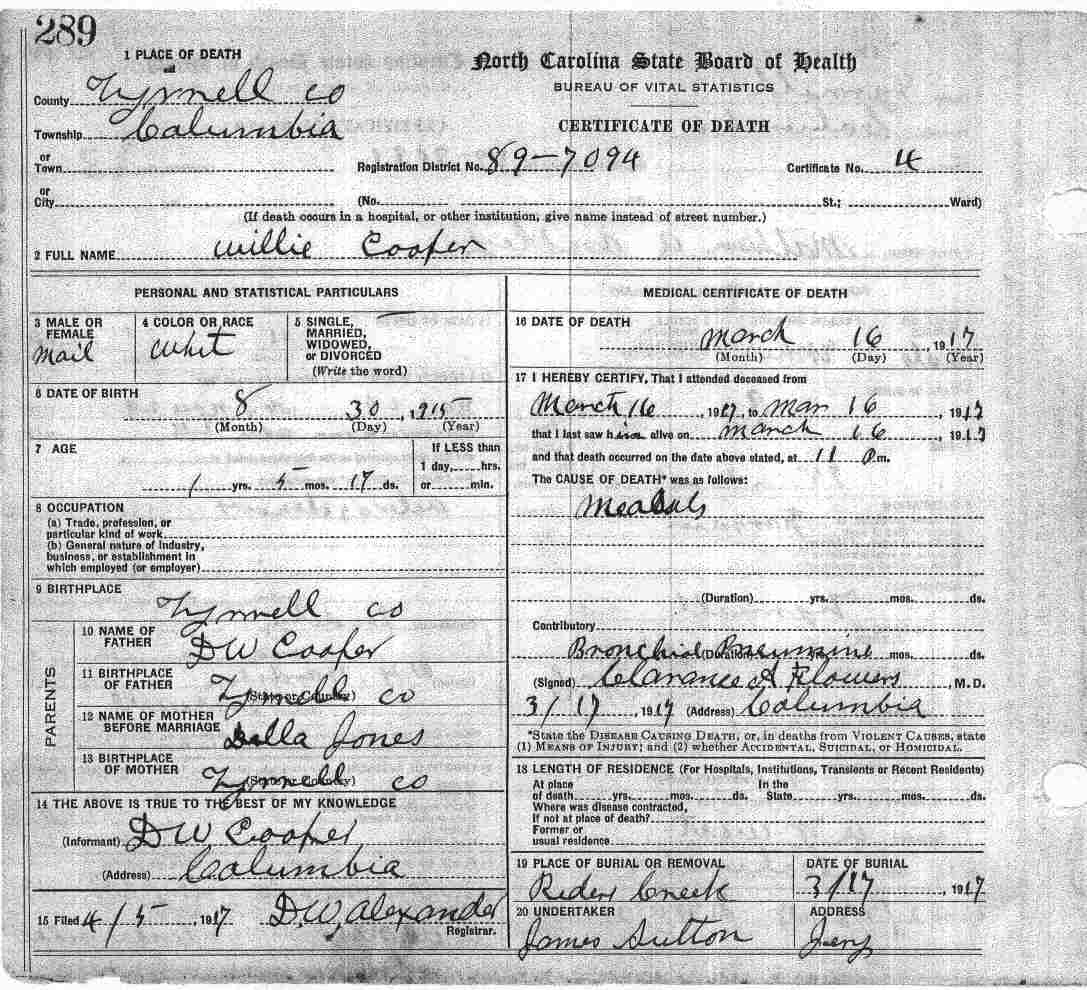 289
1 PLACE OF DEATH
North Carolina State Board of Health
BUREAU OF VITAL STATISTICS
CERTIFICATE OF DEATH
County Tyrrell co
Township Columbia
or
Town
Registration District No. 89-7094 Certificate No. 4
or
City (No. St.; Ward)
(If death occurs in a hospital, or other institution, give name instead of street number.)
2 FULL NAME Willie Cooper
PERSONAL AND STATISTICAL PARTICULARS
3 MALE OR FEMALE
Mail
4 COLOR OR RACE
Whit
5 SINGLE,
MARRIED,
WIDOWED,
or DIVORCED
(Write the word)
6 DATE OF BIRTH
8 30, 1915
(Month) (Day) (Year)
7 AGE
1 yrs. 5 mos. 17 ds.
If LESS than
1 day, hrs.
or min.
8 OCCUPATION
(a) Trade, profession, or
particular kind of work
(b) General nature of Industry,
business, or establishment in
which employed (or employer)
9 BIRTHPLACE
Tyrrell co
PARENTS
10 NAME OF
FATHER
D W Cooper
11 BIRTHPLACE
OF FATHER
(State or Country)
Tyrrell co
12 NAME OF MOTHER
BEFORE MARRIAGE
Della Jones
13 BIRTHPLACE
OF MOTHER
(State or Country)
Tyrrell co
14 THE ABOVE IS TRUE TO THE BEST OF MY KNOWLEDGE
(Informant) D W Cooper
(Address) Columbia
15 Filed 4/5, 1917 D. W. Alexander
Registrar.
MEDICAL CERTIFICATE OF DEATH
16 DATE OF DEATH
March 16, 1917
(Month) (Day) (Year)
17 I HEREBY CERTIFY, That I attended deceased from
March 16, 1917, to Mar 16, 1917
that I last saw him alive on March 16, 1917
and that death occurred on the date above stated, at 11 P m.
The CAUSE OF DEATH* was as follows:
Measals
(Duration) yrs. mos. ds.
Contributory
Bronchial
(Duration) mos. ds.
(Signed) Clarance A Flowers, M. D.
3/17, 1917 (Address) Columbia
*State the DISEASE CAUSING DEATH, or, in deaths from VIOLENT CAUSES, state
(1) MEANS OF INJURY; and (2) whether ACCIDENTAL, SUICIDAL, or HOMICIDAL.
18 LENGTH OF RESIDENCE (For Hospitals, Institutions, Transients or Recent Residents)
At place
of death yrs. mos. ds.
In the
State yrs. mos. ds.
Where was disease contracted,
If not at place of death?
Former or
usual residence
19 PLACE OF BURIAL OR REMOVAL
Riders Creek
DATE OF BURIAL
3/17, 1917
20 UNDERTAKER
James Sutton
ADDRESS